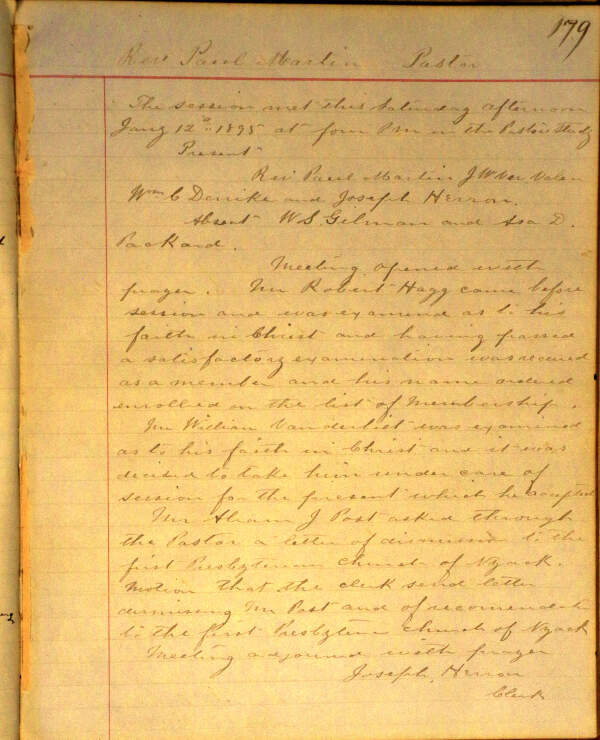 179
Rev Paul Martin Pastor
The session met this Saturday afternoon
Jany 12th 1895 at four P m in the Pastors Study
Present
Rev Paul Martin J W Ver Valen
Wm C Denike and Joseph Herron.
Absent W. S. Gilman and Asa D.
Packard.
Meeting opened with
prayer. Mr Robert Hagg came before
session and was examend as to his
faith in Christ and having passed
a satisfactory examenation was received
as a member and his name ordered
enrolled on the list of Membership.
Mr William Vanderlist was examined
as to his faith in Christ and it was
decided to take him under care of
session for the present which he accepted
Mr Abram J Post asked through
the Pastor a letter of dismission to the
first Presbyterian Church of Nyack.
Motion that the clerk send letter
dismising Mr Post and of recomendat
to the first Church of Nyack
Meeting with prayer
Joseph Herron
Clerk